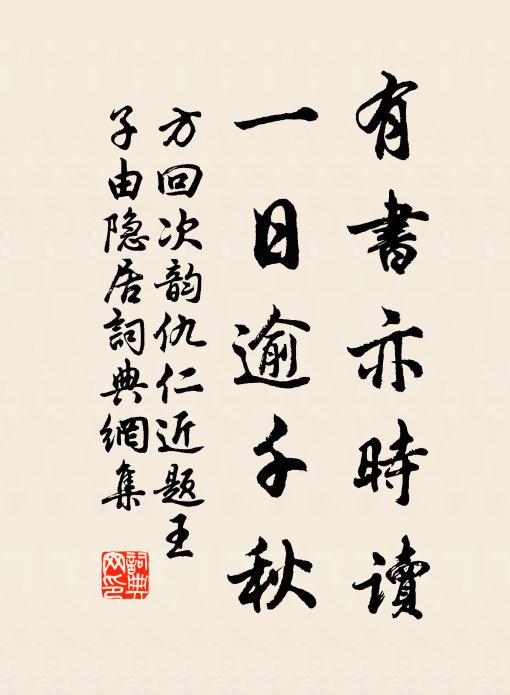 有書亦時讀
一日逾千秋
方回次韵仇仁近题王
子由隐居詞典網集
詞典網印